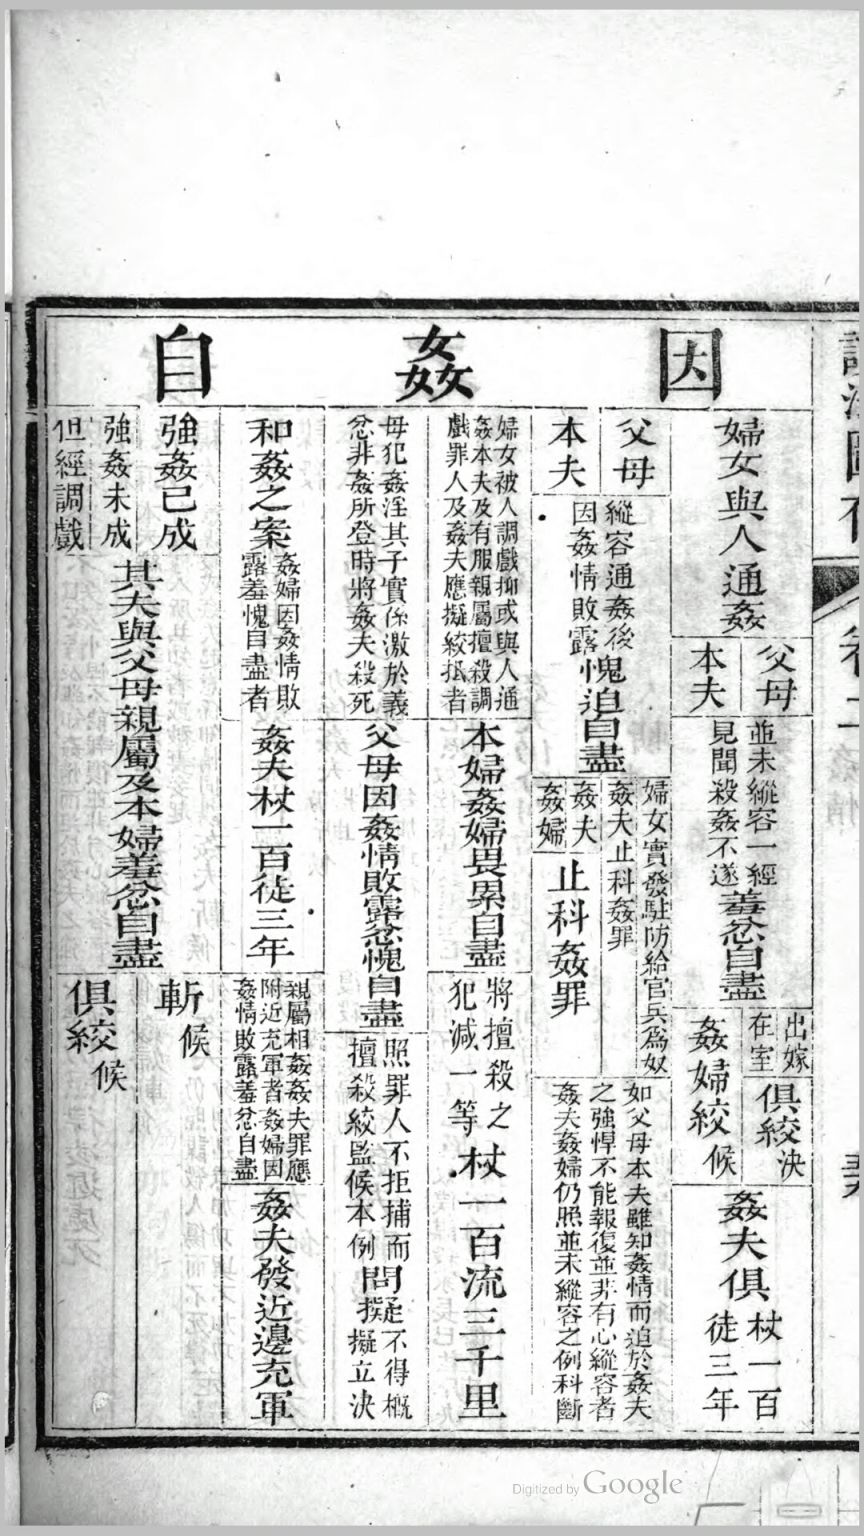 因姦自
婦女與人通姦
父母
本夫
並未縱容一經
見聞殺姦不遂
羞忿自盡
出嫁
在室
俱絞決
姦婦絞候
姦夫俱
杖一百
徒三年
父母
本夫
縱容通姦後
因姦情敗露
愧迫自盡
婦女實發駐防給官兵為奴
姦夫止科姦罪
姦夫
姦婦
止科姦罪
如父母本夫雖知姦情而迫於姦夫
之強悍不能報復並非有心縱容者
姦夫姦婦仍照並未縱容之例科斷
婦女被人調戲抑或與人通
姦本夫及有服親屬擅殺調
戲罪人及姦夫應擬絞抵者
本婦姦婦畏累自盡
將擅殺之
犯減一等
杖一百流三千里
母犯姦淫其子實係激於義
忿非姦所登時將姦夫殺死
父母因姦情敗露忿愧自盡
照罪人不拒捕而
擅殺絞監候本例
問擬不得概
擬立決
和姦之案
姦婦因姦情敗
露羞愧自盡者
姦夫杖一百徒三年
親屬相姦姦夫罪應
附近充軍者姦婦因
姦情敗露羞忿自盡
姦夫發近邊充軍
強姦已成
強姦未成
但經調戲
其夫與父母親屬及本婦羞忿自盡
斬候
俱絞候
Digitized by Google